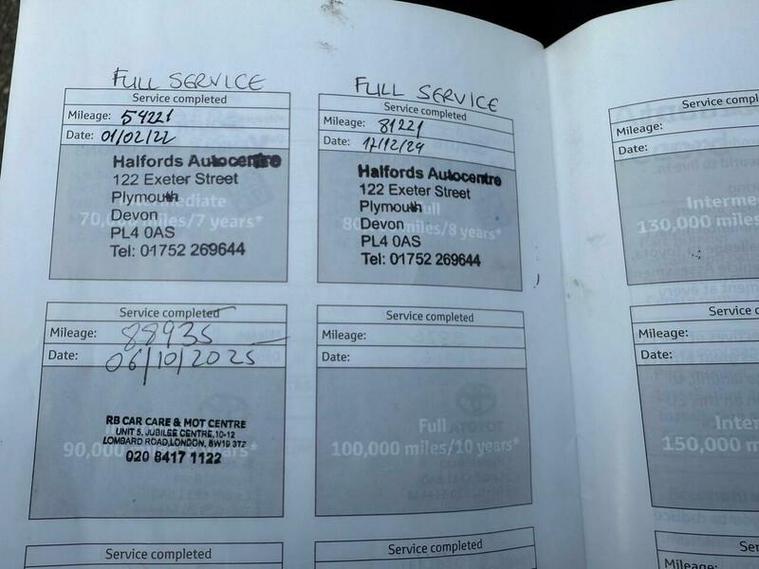 FULL SERVICE
Service completed
Mileage: 54221
Date: 01/02/22
Halfords Autocentre
122 Exeter Street
Plymouth
Devon
PL4 0AS
Tel: 01752 269644
70,000 miles/7 years*
FULL SERVICE
Service completed
Mileage: 81221
Date: 17/12/24
Halfords Autocentre
122 Exeter Street
Plymouth
Devon
PL4 0AS
Tel: 01752 269644
Full
miles/8 years*
Service completed
Mileage: 88935
Date: 06/10/2025
RB CAR CARE & MOT CENTRE
UNIT 5, JUBILEE CENTRE, 10-12
LOMBARD ROAD, LONDON, SW19 3TZ
020 8417 1122
Service completed
Mileage:
Date:
Full
100,000 miles/10 years*
Service completed
Service completed
Service compl
Mileage:
Date:
Interme
130,000 miles
Service c
Mileage:
Date:
Inter
150,000 m
Ser
Mileage: